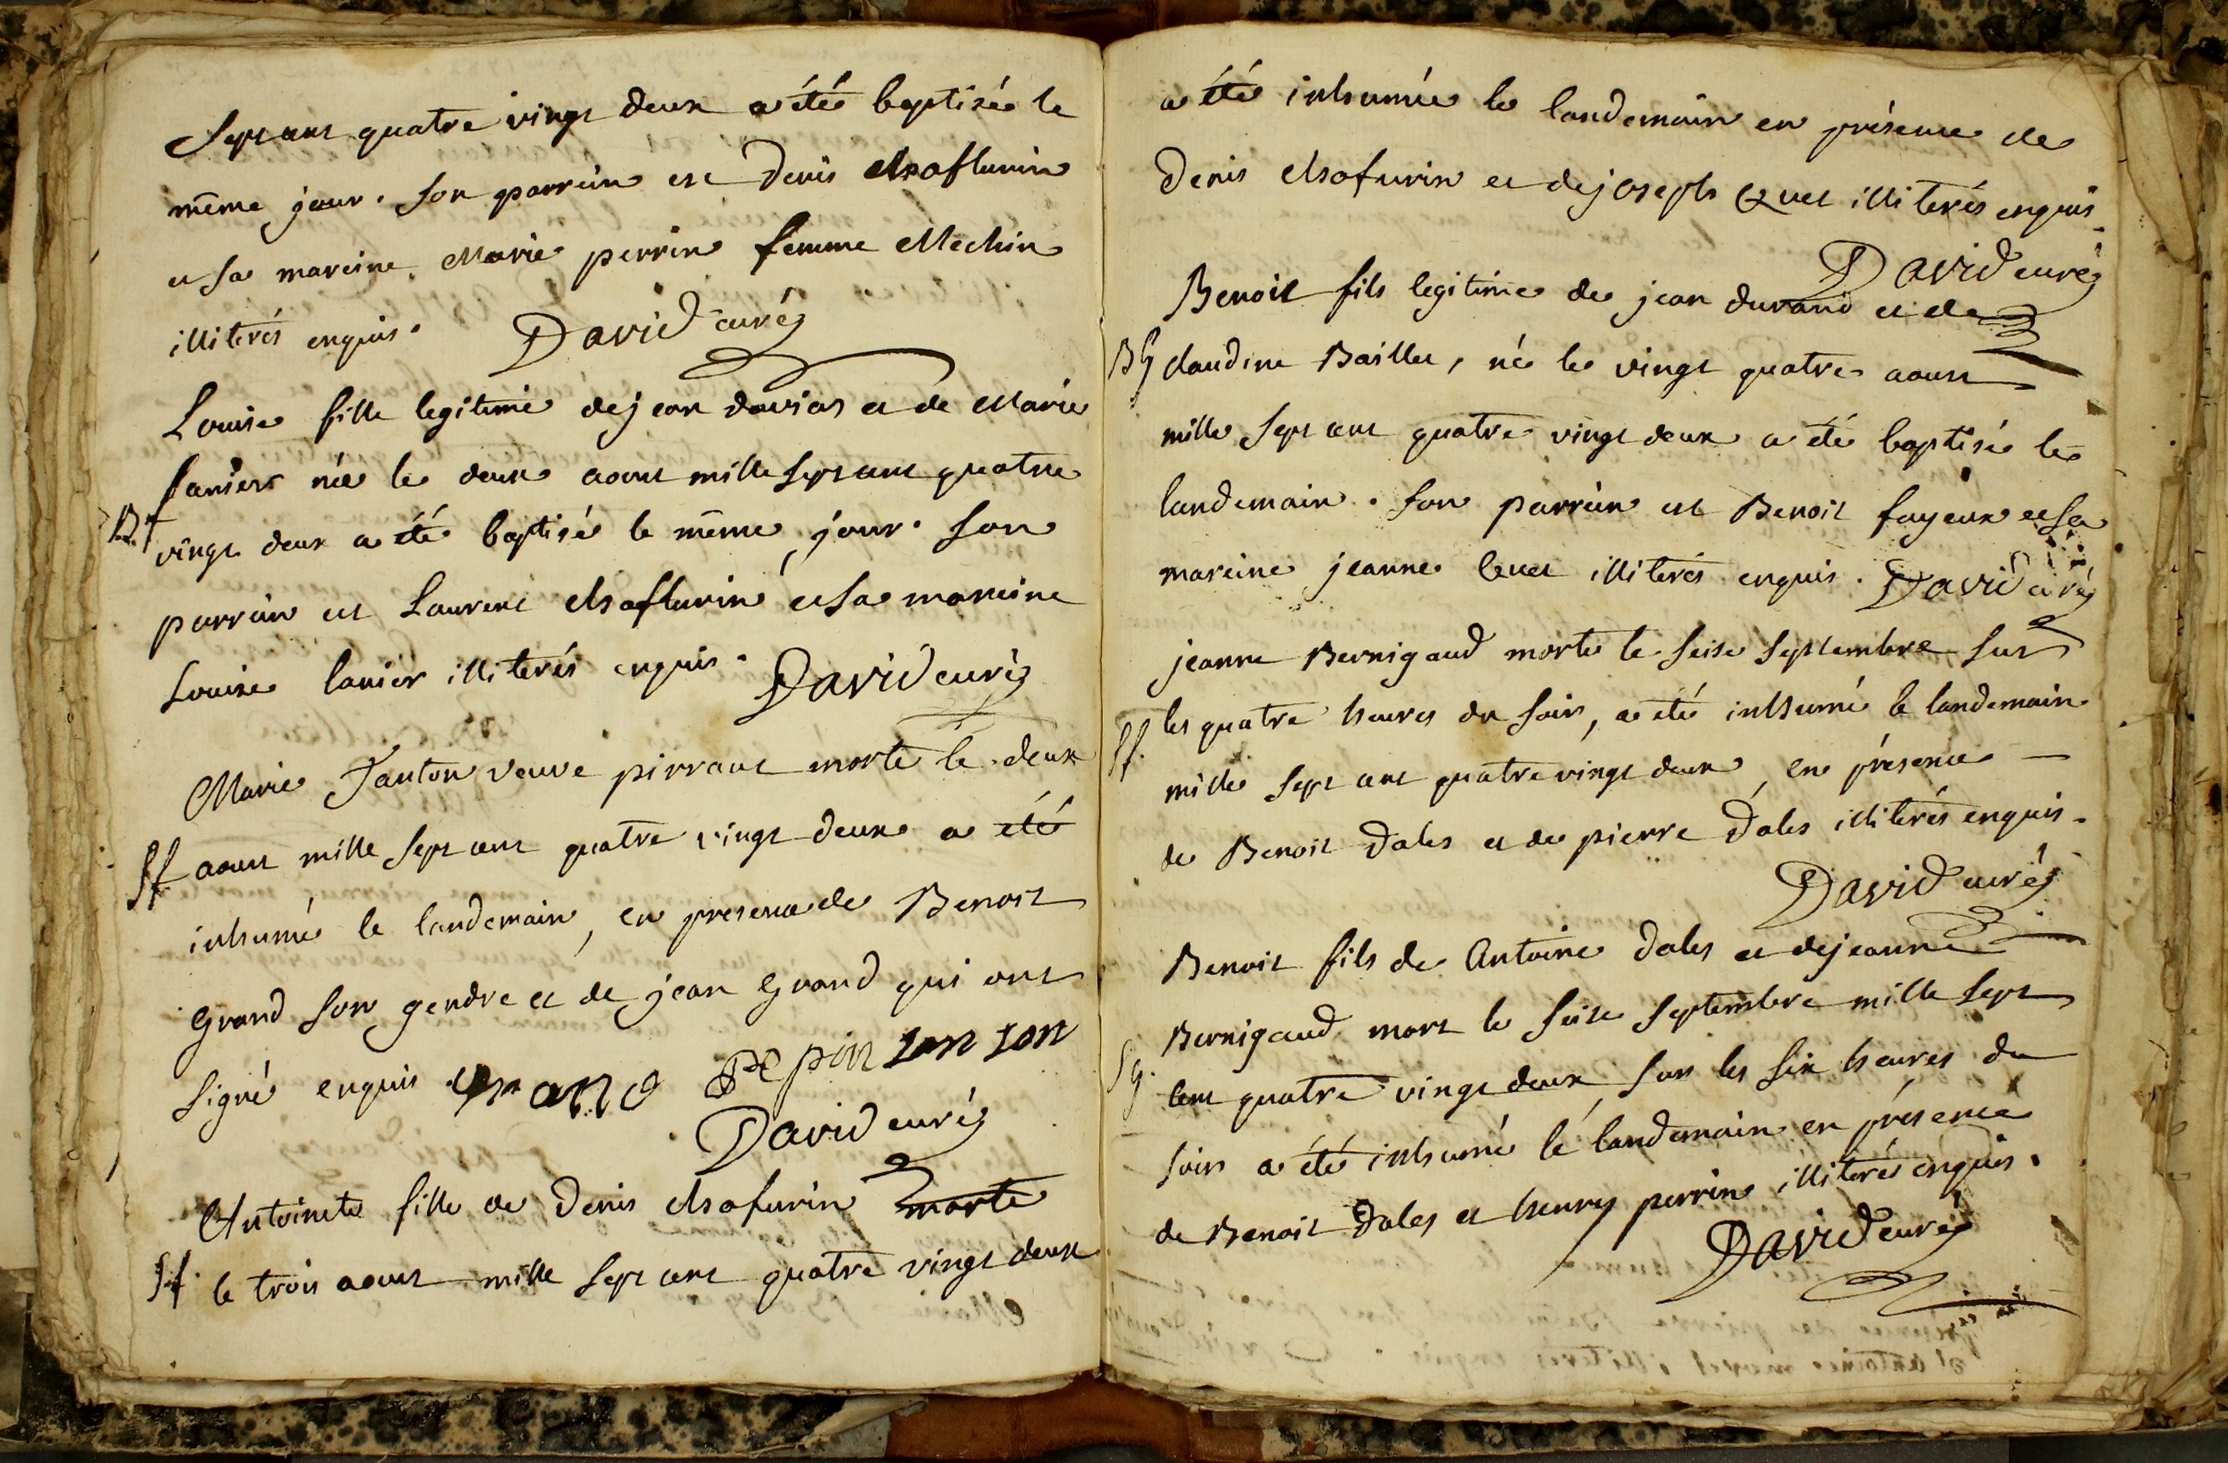 Sept cent quatre vingt deux a été baptisée le
même jour. son parrein est Denis
et sa mareine Marie perrin femme Mechin
illiterés enquis. David curé
Louise fille legitime de jean davias et de Marie
lanier née le deux aout mille sept cent quatre
B.f
vingt deux a été baptisé le même jour. son
parrein est Laurent et sa mareine
Louise lanier illiterés enquis. David curé
Marie Tanton veuve pirraut morte le deux
Sf aout mille sept cent quatre vingt deux a été
inhumé le landemain, en presence de Benoit
grand son gendre et de jean grand qui ont
signé enquis grand
David curé
Antoinete fille de Denis morte
Sf. le trois aout mille sept cent quatre vingt deux
a été inhumée le landemain en présence de
Denis et de joseph Quet illiterés enquis.
David curé
Benoit fils legitime de jean durand et de
Bg claudine Baillet, né le vingt quatre aout
mille sept cent quatre vingt deux a été baptisé le
landemain. son parrein est Benoit fayeux et sa
mareine jeanne illiterés enquis. David curé
jeanne Bernigaud morte le seise septembre sur
Sf. les quatre heures du soir, a été inhumé le landemain
mille sept cent quatre vingt deux, en présence
de Benoit Dales et de pierre Dales illiterés enquis.
David curé
Benoit fils de Antoine Dales et de jeanne
Bernigaud mort le seise septembre mille sept
Sg. cent quatre vingt deux, sur les six heures du
soir a été inhumé le landemain en présence
de Benoit Dales et henry perrin illiterés enquis.
David curé